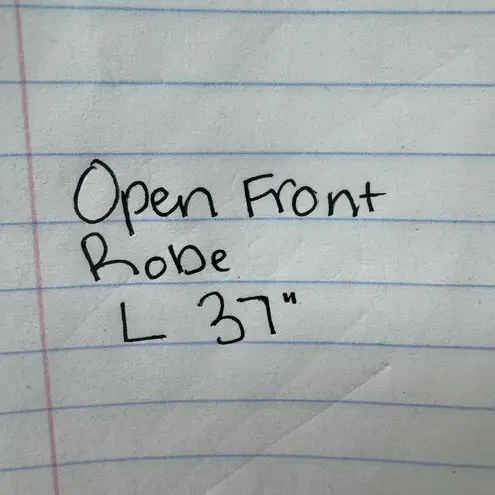 Open Front
Robe
L 37"